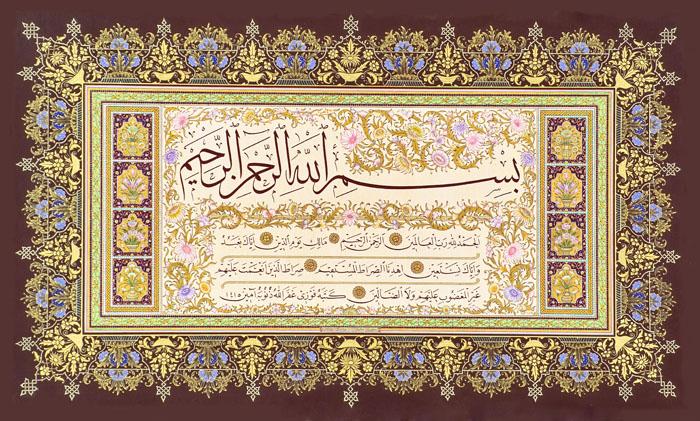 بِسْمِ اللَّهِ الرَّحْمَٰنِ الرَّحِيمِ
الحَمْدُ لِلَّهِ رَبِّ العَالَمِينَ الرَّحْمَنِ الرَّحِيمِ مَالِكِ يَوْمِ الدِّينِ إِيَّاكَ نَعْبُدُ
وَإِيَّاكَ نَسْتَعِينُ اهْدِنَا الصِّرَاطَ المُسْتَقِيمَ صِرَاطَ الَّذِينَ أَنْعَمْتَ عَلَيْهِمْ
غَيْرِ المَغْضُوبِ عَلَيْهِمْ وَلَا الضَّالِّينَ كتبه فوزي غفر الله ذنوبه آمين ١٤١٥